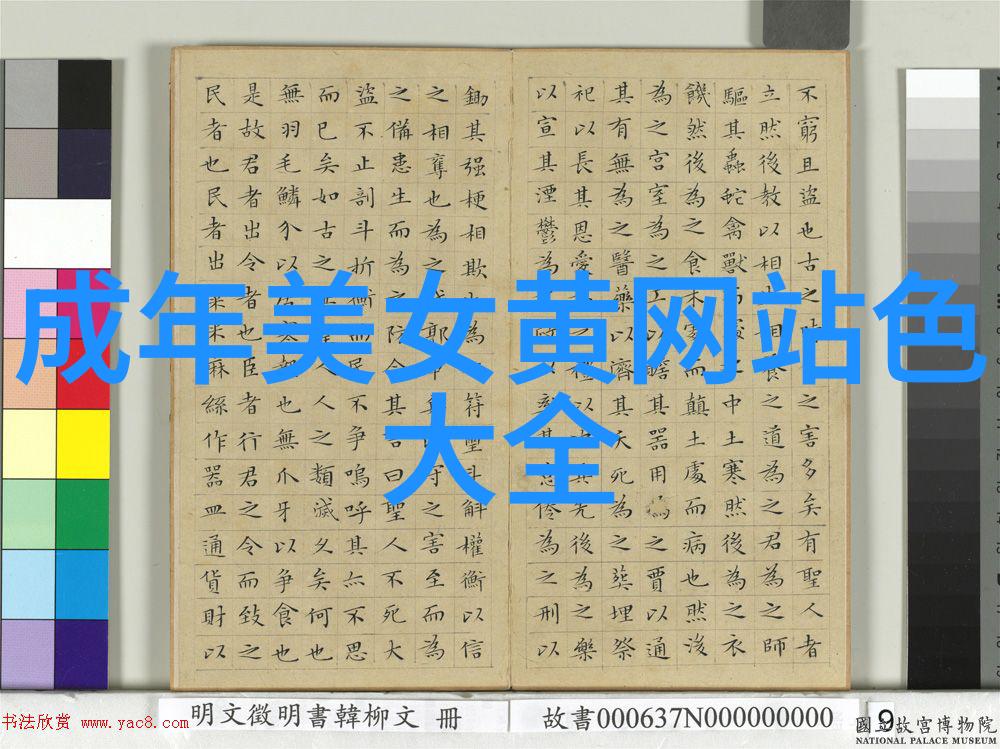 成年美女黄网站色
大全
不窮且盜也古之之害多矣有聖人者
立然後教以相相養之道為之君為之師
驅其蟲蛇禽獸之中土寒然後為之衣
饑然後為之食木處而顛土處而病也然後
為之宮室為之工以贍其器用為之賈以通
其有無為之醫藥以濟其夭死為之葬埋祭
祀以長其恩愛之禮以其先後為之樂
以宣其湮鬱為以其為之刑以
鋤其强梗相欺為符璽斗斛權衡以信
之相奪也為之郭守之害至而為
之備患生而為之防今其言曰聖人不死大
盜不止剖斗折衡而民不爭嗚呼其亦不思
而已矣如古之人人之類滅久矣何也
無羽毛鱗介以居寒熱也無爪牙以爭食也
是故君者出令者也臣者行君之令而致之
民者也民者出粟米麻絲作器皿通貨財以
明文徵明書韓柳文 冊
故書000637N000000000
9
書法欣赏 www.yac8.com
國立故宮博物院
NATIONAL PALACE MUSEUM